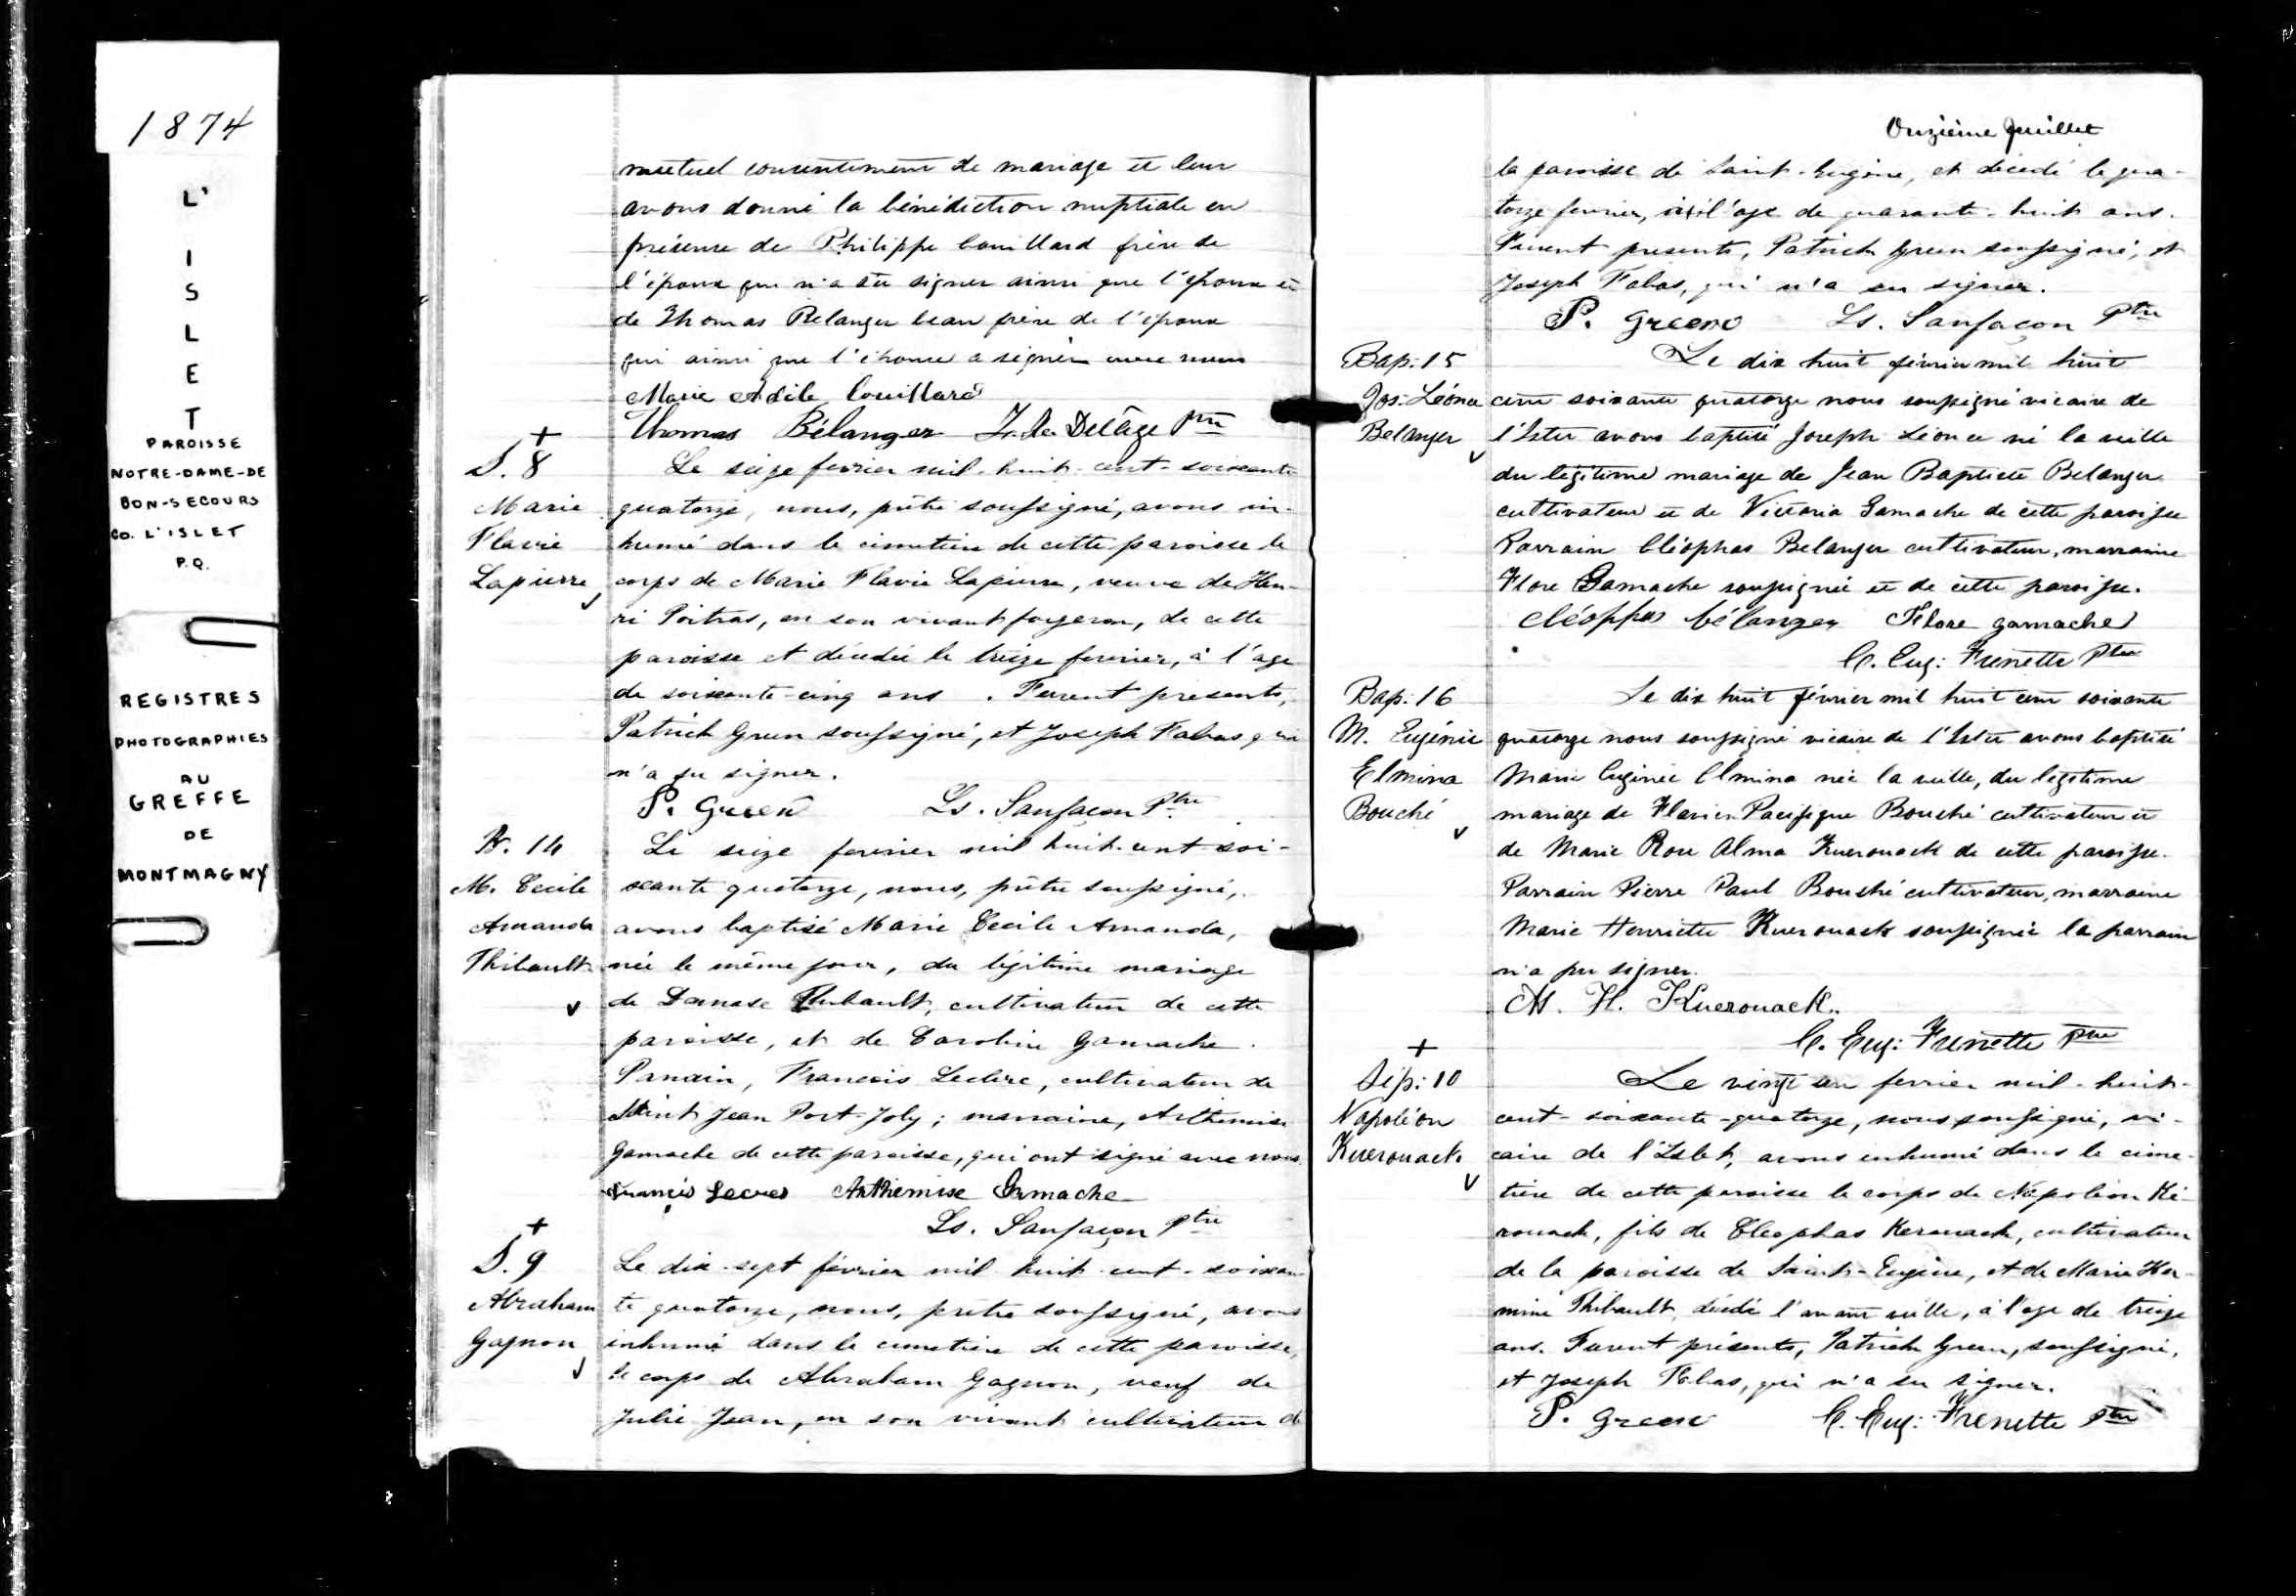 1874
L'
I
S
L
E
T
PAROISSE
NOTRE-DAME-DE
BON-SECOURS
CO. L'ISLET
P.Q.
REGISTRES
PHOTOGRAPHIES
AU
GREFFE
DE
MONTMAGNY
mutuel consentement de mariage et leur
avons donné la bénédiction nuptiale en
présence de Philippe Couillard frère de
l'époux qui n'a su signer ainsi que l'époux et
de Thomas Belanger beau frère de l'époux
qui ainsi que l'épouse a signé avec nous
Marie Adèle Couillard
Thomas Bélanger Delâge Ptre
+
S. 8
Marie
Flavie
Lapierre
Le seize fevrier mil-huit-cent-soixante
quatorze, nous, prêtre soussigné, avons in-
humé dans le cimetière de cette paroisse le
corps de Marie Flavie Lapierre, veuve de Hen-
ri Poitras, en son vivant forgeron, de cette
paroisse et décédée le treize fevrier, à l'age
de soixante-cinq ans . Furent presents,
Patrick Green soussigné, et Joseph Fabas qui
n'a su signer.
P. Green Ls. Sanfaçon Ptre
B. 14
M. Cecile
Amanda
Thibault
Le seize fevrier mil huit-cent-soi-
xante quatorze, nous, prêtre soussigné,
avons baptisé Marie Cecile Amanda,
née le même jour, du légitime mariage
de Damase Thibault, cultivateur de cette
paroisse, et de Caroline Gamache.
Parrain, Francois Leclerc, cultivateur de
Saint Jean Port-Joly; marraine, Arthemise
Gamache de cette paroisse, qui ont signé avec nous.
Arthemise Gamache
Ls. Sanfaçon Ptre
+
S. 9
Abraham
Gagnon
Le dix-sept février mil huit-cent-soixan
te quatorze, nous, prêtre soussigné, avons
inhumé dans le cimetière de cette paroisse,
le corps de Abraham Gagnon, veuf de
Julie Jean, en son vivant cultivateur de
Onzième feuillet
la paroisse de Saint-Eugène, et décédé le qua-
torze fevrier, à l'age de quarante-huit ans.
Furent presents, Patrick Green soussigné, et
Joseph Fabas, qui n'a su signer.
P. Green Ls. Sanfaçon Ptre
Bap: 15
Jos: Léonce
Belanger
Le dix huit février mil huit
cent soixante quatorze nous soussigné vicaire de
l'Islet avons baptisé Joseph Léonce né la veille
du légitime mariage de Jean Baptiste Belanger
cultivateur et de Victoria Gamache de cette paroisse
Parrain Cléophas Belanger cultivateur, marraine
Flore Gamache soussignée et de cette paroisse.
Cléophas bélanger Flore gamache
C. Eug: Frenette Ptre
Bap: 16
M. Eugénie
Elmina
Bouché
Le dix huit février mil huit cent soixante
quatorze nous soussigné vicaire de l'Islet avons baptisé
Marie Eugénie Elmina née la veille, du légitime
mariage de Flavien Pacifique Bouché cultivateur et
de Marie Rose Alma Kuerouack de cette paroisse.
Parrain Pierre Paul Bouché cultivateur, marraine
Marie Henriette Kuerouack soussignée la parrain
n'a pu signer.
M. H. Kuerouack.
C. Eug: Frenette Ptre
+
Sép: 10
Napoléon
Kuerouack
Le vingt un fevrier mil-huit-
cent-soixante-quatorze, nous soussigné, vi-
caire de l'Islet, avons inhumé dans le cime-
tière de cette paroisse le corps de Napoléon Ké-
rouack, fils de Cleophas Kerouack, cultivateur
de la paroisse de Saint-Eugène, et de Marie Her-
mine Thibault, décédé l'avant veille, à l'age de treize
ans. Furent présents, Patrick Green, soussigné,
et Joseph Fabas, qui n'a su signer.
P. Green C. Eug: Frenette Ptre